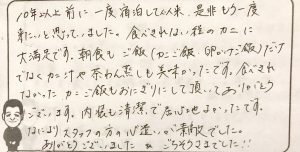 10年以上前に一度宿泊して以来、是非もう一度
来たいと思っていました。食べきれない程のカニに
大満足です。朝食も ご飯(カニご飯・卵かけご飯)だけ
でなくカニ汁や茶わん蒸しも美味かったです。食べきれ
なかった カニご飯もおにぎりにして頂いてありがとう
ございます。内装も清潔で居心地もよかったです。
なにより スタッフの方の心遣いが素敵でした。
ありがとうございました ごちそうさまでした!!